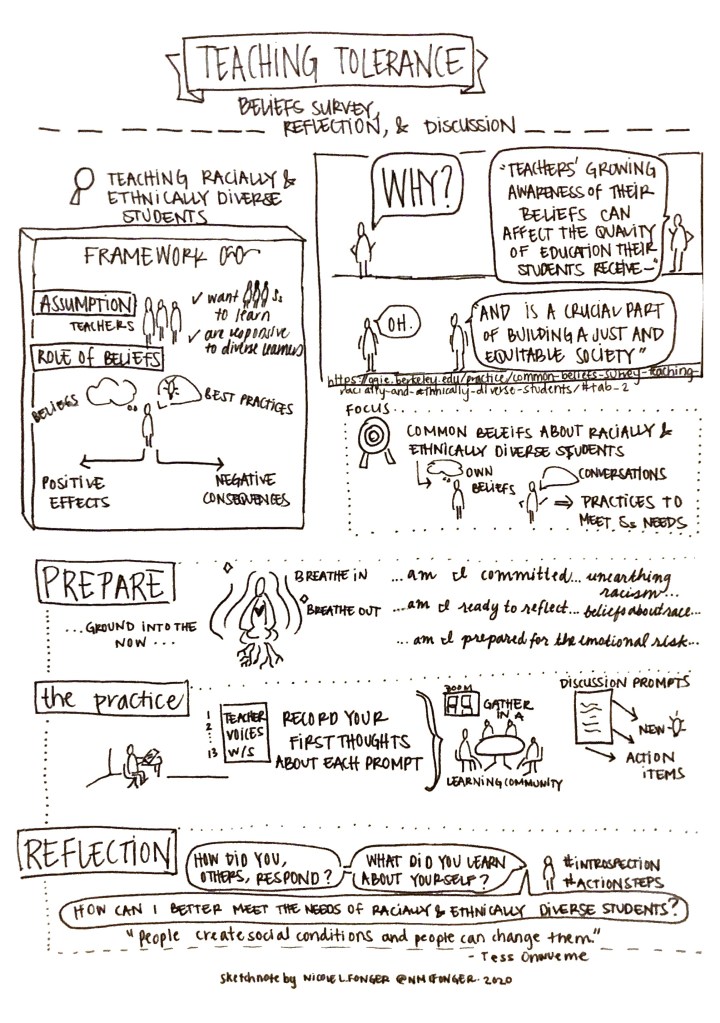 TEACHING TOLERANCE
BELIEFS SURVEY,
REFLECTION, & DISCUSSION
TEACHING RACIALLY &
ETHNICALLY DIVERSE
STUDENTS
FRAMEWORK
ASSUMPTION
TEACHERS
✓ want Ss
to learn
✓ are responsive
to diverse learners
ROLE OF BELIEFS
BELIEFS
BEST PRACTICES
POSITIVE
EFFECTS
NEGATIVE
CONSEQUENCES
WHY?
"TEACHERS' GROWING
AWARENESS OF THEIR
BELIEFS CAN
AFFECT THE QUALITY
OF EDUCATION THEIR
STUDENTS RECEIVE—"
OH.
"AND IS A CRUCIAL PART
OF BUILDING A JUST AND
EQUITABLE SOCIETY"
https://ggie.berkeley.edu/practice/common-beliefs-survey-teaching-
racially-and-ethnically-diverse-students/#tab-2
FOCUS...
COMMON BELEIFS ABOUT RACIALLY &
ETHNICALLY DIVERSE STUDENTS
OWN
BELIEFS
CONVERSATIONS
⇒ PRACTICES TO
MEET Ss NEEDS
PREPARE
...GROUND INTO THE
NOW...
BREATHE IN
BREATHE OUT
...am I committed... unearthing
racism...
...am I ready to reflect... beliefs about race...
...am I prepared for the emotional risk...
the practice
1
2
13
TEACHER
VOICES
W/S
RECORD YOUR
FIRST THOUGHTS
ABOUT EACH PROMPT
ZOOM
GATHER
IN A
LEARNING COMMUNITY
DISCUSSION PROMPTS
NEW
ACTION
ITEMS
REFLECTION
HOW DID YOU,
OTHERS, RESPOND?
WHAT DID YOU LEARN
ABOUT YOURSELF?
#INTROSPECTION
#ACTIONSTEPS
HOW CAN I BETTER MEET THE NEEDS OF RACIALLY & ETHNICALLY DIVERSE STUDENTS?
"People create social conditions and people can change them."
- Tess Onwueme
sketchnote by NICOLE L. FONGER @NMLFONGER. 2020